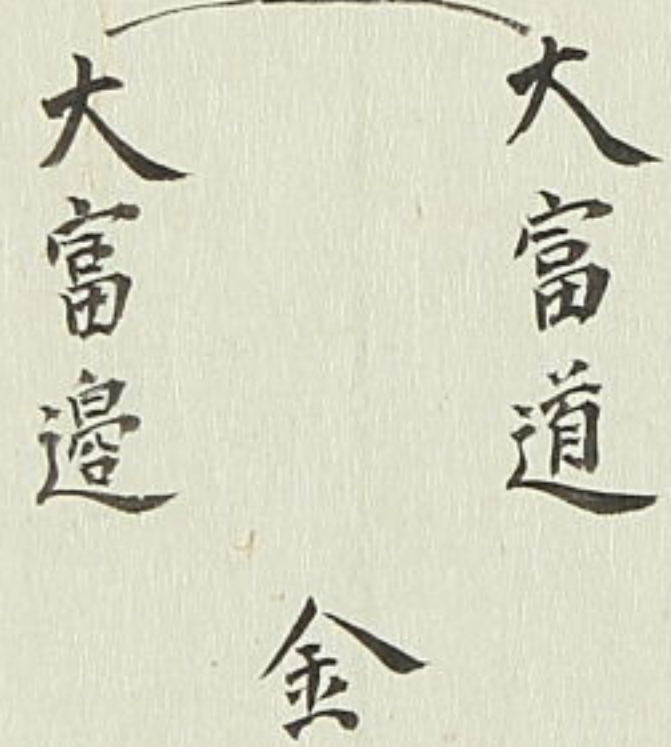 大富道
大富邉
金